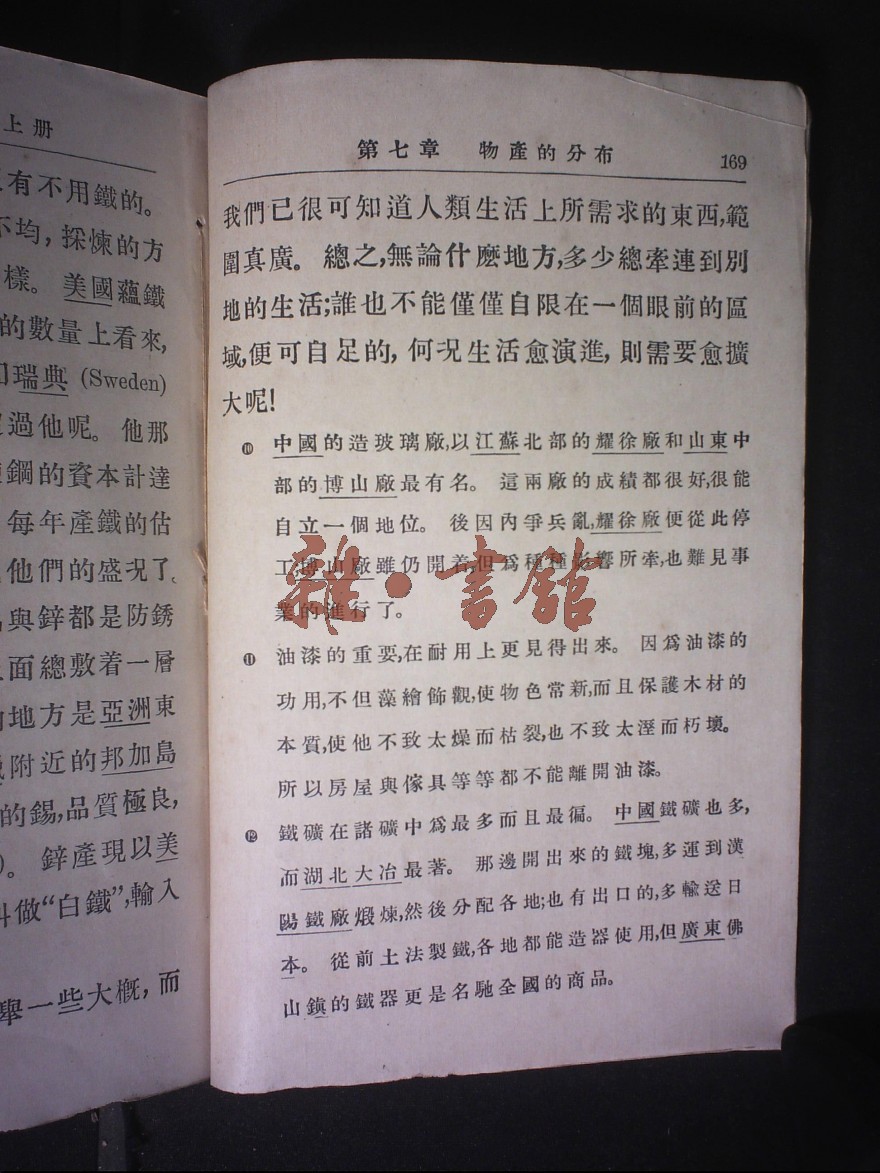 上册
有不用鐵的。
不均，採煉的方
樣。美國蘊鐵
的數量上看來，
瑞典 (Sweden)
過他呢。他那
鋼的資本計達
每年產鐵的估
他們的盛况了
與鋅都是防銹
面總敷着一層
地方是亞洲東
附近的邦加島
的錫，品質極良，
。鋅產現以美
叫做“白鐵”，輸入
舉一些大概，而
第七章 物產的分布 169
我們已很可知道人類生活上所需求的東西，範
圍真廣。總之，無論什麽地方，多少總牽連到別
地的生活；誰也不能僅僅自限在一個眼前的區
域，便可自足的，何况生活愈演進，則需要愈擴
大呢！
⑩ 中國的造玻璃廠，以江蘇北部的耀徐廠和山東中
部的博山廠最有名。這兩廠的成績都很好，很能
自立一個地位。後因內爭兵亂，耀徐廠便從此停
工；博山廠雖仍開着，但爲種種影響所牽，也難見事
業的進行了。
雜·書館
⑪ 油漆的重要，在耐用上更見得出來。因爲油漆的
功用，不但藻繪飾觀，使物色常新，而且保護木材的
本質，使他不致太燥而枯裂，也不致太溼而朽壞。
所以房屋與傢具等等都不能離開油漆。
⑫ 鐵礦在諸礦中爲最多而且最徧。中國鐵礦也多，
而湖北大冶最著。那邊開出來的鐵塊，多運到漢
陽鐵廠煅煉，然後分配各地；也有出口的，多輸送日
本。從前土法製鐵，各地都能造器使用，但廣東佛
山鎮的鐵器更是名馳全國的商品。